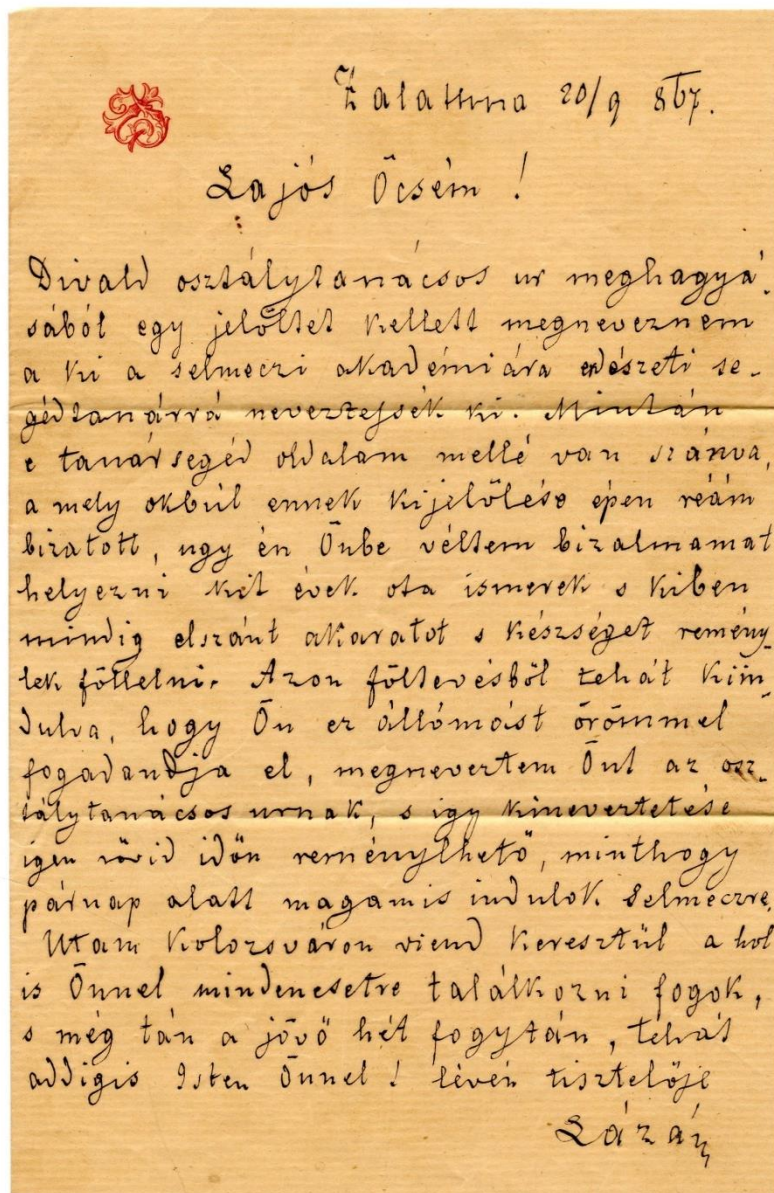 Zalathna 20/9 867.
Lajós Öcsém!
Divald osztálytanácsos ur meghagyá-
sából egy jelöltet kellett megneveznem
a ki a selmeczi akadémiára erdészeti se-
gédtanárrá neveztessék ki. Mintán
e tanársegéd oldalam mellé van szánva,
a mely okbúl ennek kijelölése épen reám
bizatott, ugy én Önbe véltem bizalmamat
helyezni kit évek ota ismerek s kiben
mindig elszánt akaratot s készséget remény-
lek föllelni. Azon föltevésből tehát kiin-
dulva, hogy Ön ez állómást örömmel
fogadandja el, megneveztem Önt az osz-
tálytanácsos urnak, s igy kineveztetése
igen rövid idön reménylhető, minthogy
párnap alatt magamis indulok Selmeczre,
Utam Kolozsváron viend keresztül a hol
is Önnel mindenesetre találkozni fogok,
s még tán a jövö hét fogytán, tehát
addigis Isten Önnel! lévén tisztelője
Lázár